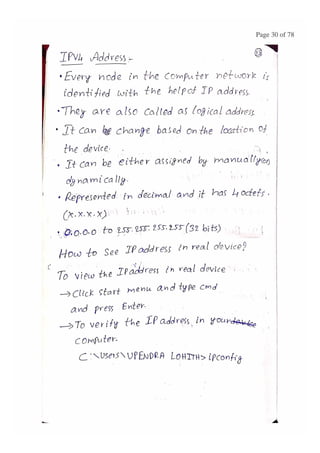 Page 30 of 78
IPV4 Address:-
• Every node in the computer network is
identified with the help of IP address.
• They are also called as logical address
• It can be change based on the loaction of
the device.
• It can be either assigned by manually or
dynamically.
• Represented in decimal and it has 4 octets.
(X.X.X.X)
• 0.0.0.0 to 255.255.255.255 (32 bits)
How to see IP address in real device?
To view the IP address in real device
→ Click start menu and type cmd
and press Enter.
→ To verify the IP address in your device
computer.
C:\Users\UPENDRA LOHITH> ipconfig